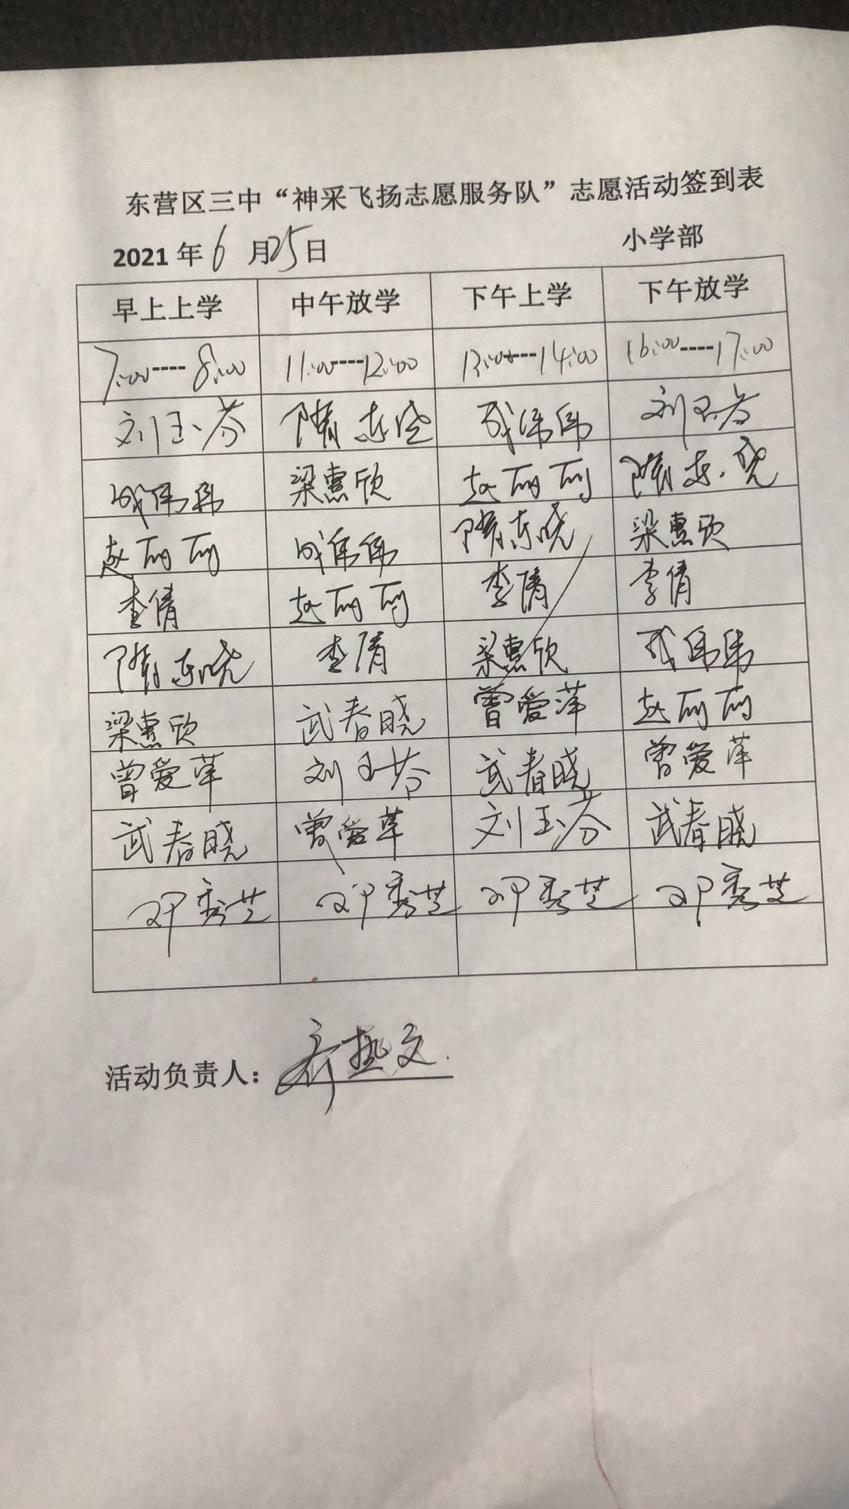 东营区三中“神采飞扬志愿服务队”志愿活动签到表
2021年6月25日 小学部
早上上学 中午放学 下午上学 下午放学
7:00----8:00 11:00----12:00 13:00----14:00 16:00----17:00
刘玉芬 隋志晓 成伟伟 刘玉芬
成伟伟 梁惠欣 赵丽丽 隋志晓
赵丽丽 成伟伟 隋东晓 梁惠欣
李倩 赵丽丽 李倩 李倩
隋东晓 李倩 梁惠欣 成伟伟
梁惠欣 武春晓 曾爱萍 赵丽丽
曾爱萍 刘玉芬 武春晓 曾爱萍
武春晓 曾爱萍 刘玉芬 武春晓
邓秀芝 邓秀芝 邓秀芝 邓秀芝
活动负责人：